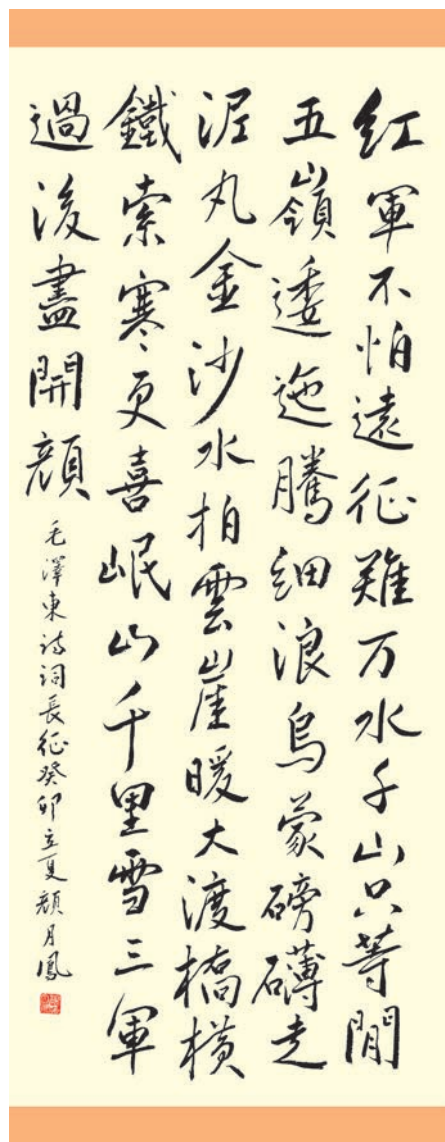 红軍不怕遠征難万水千山只等閒
五嶺逶迤騰細浪烏蒙磅礴走
泥丸金沙水拍雲崖暖大渡橋橫
鐵索寒更喜岷山千里雪三軍
過後盡開顏
毛澤東诗词長征癸卯立夏顏月鳳